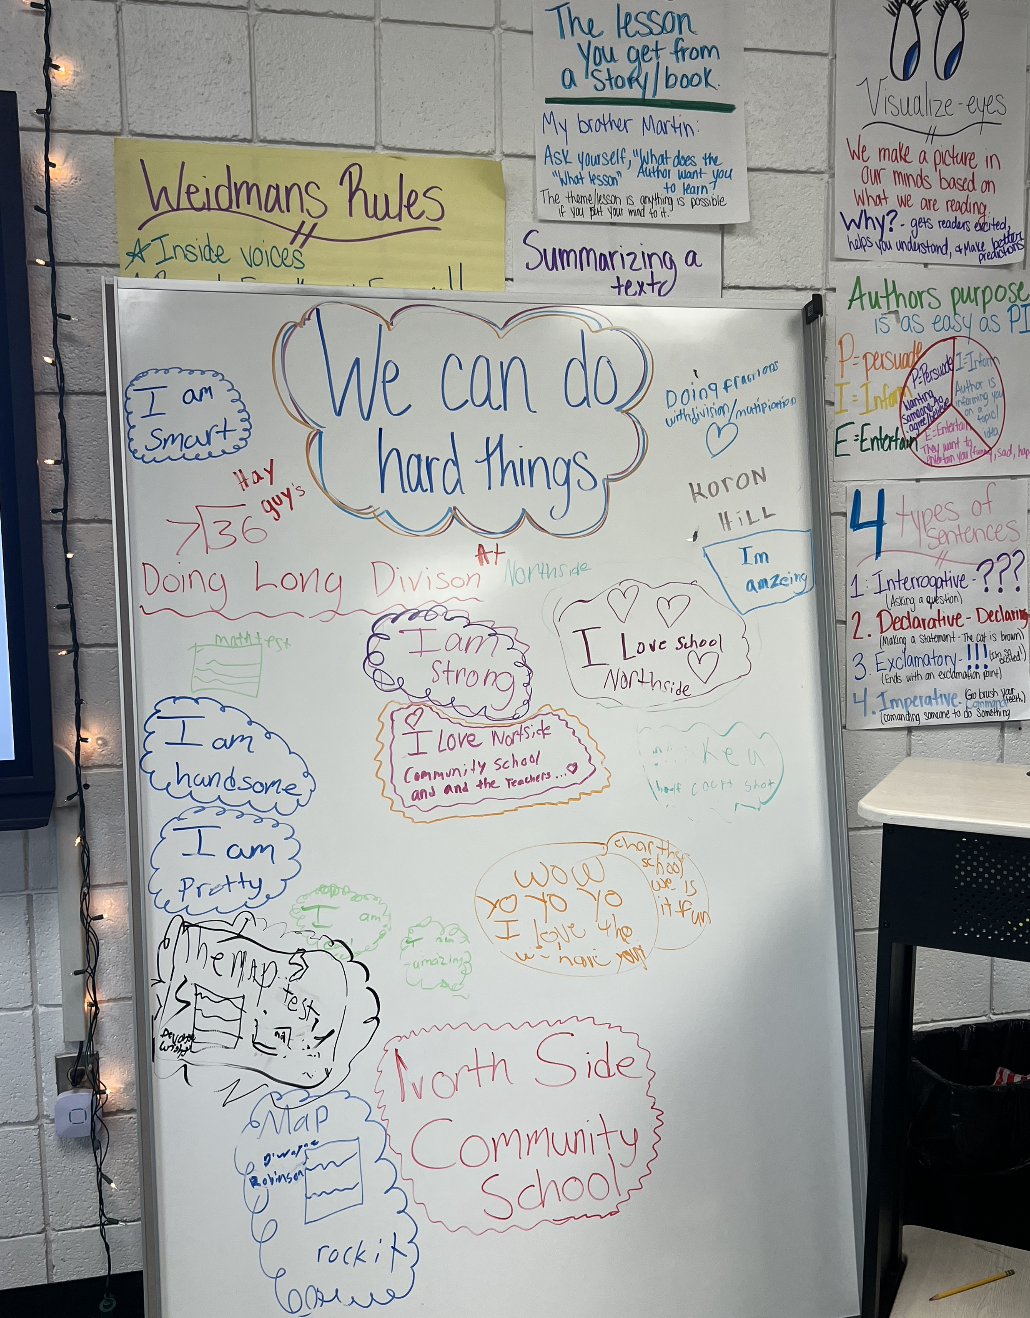 The lesson
you get from
a story/book.
My brother Martin:
Ask yourself, "What does the
"What lesson" Author want you
to learn?
The theme/lesson is anything is possible
if you put your mind to it.
Visualize-eyes
We make a picture in
our minds based on
what we are reading.
Why? - gets readers excited,
helps you understand, & make better
predictions
Weidmans Rules
Inside voices
Summarizing a
text
Authors purpose
is as easy as PI
P=persuade
I=Inform
E=Entertain
P=Persuade
wanting
someone to
agree/believe
I=Inform
Author is
informing you
on a
topic/
idea
E=Entertain
They want to
entertain you (funny, sad, hap
4 types of
sentences
1. Interrogative - ???
(Asking a question)
2. Declarative - Declaring
(Making a statement - The cat is brown)
3. Exclamatory - !!!
(Ends with an exclamation point)
4. Imperative - Command
Go brush your
teeth
(comanding someone to do something
We can do
hard things
I am
Smart
Doing fractions
with division/multiplation
Hay
guy's
7 36
KORON
HILL
Doing Long Divison
At
Northside
Im
amzeing
math test
I am
Strong
I Love School
Northside
I am
handsome
I Love Nortside
Community School
and and the Teachers...
half court shot
I am
Pretty
WOW
YO YO YO
I love the
charthy
school
we is
it fun
I am
I am
amazing
The MAP
test
North Side
Community
School
Map
Dwayne
Robinson
rock it